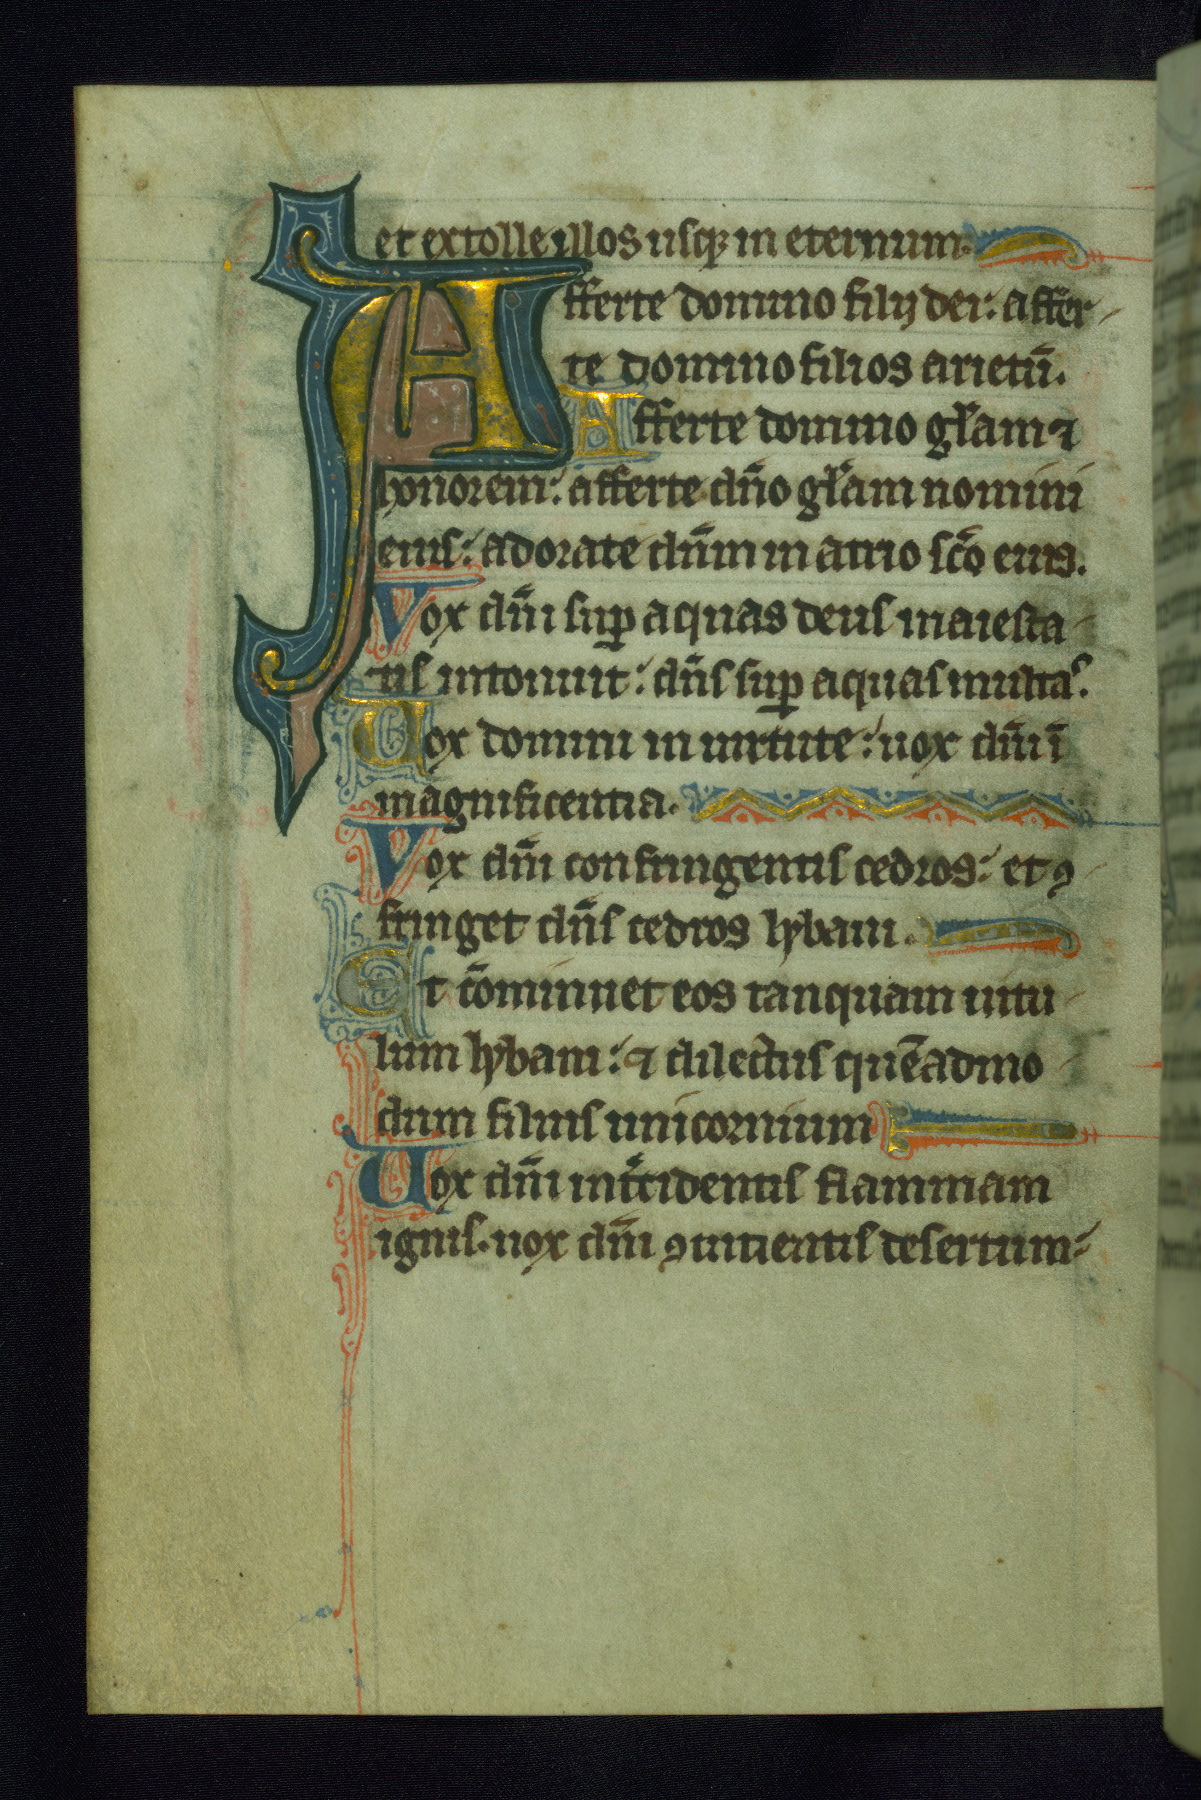 et extolle illos usq; in eternum.
Afferte domino filij dei: affer
te domino filios arietū.
Afferte domino gl̄am ⁊
honorem: afferte dn̄o gl̄am nomini
eius: adorate dn̄m in atrio sc̄o eius.
Vox dn̄i suꝑ aquas deus maiesta
tis intonuit: dn̄s suꝑ aquas multas.
Uox domini in uirtute: uox dn̄i ī
magnificentia.
Vox dn̄i confringentis cedros: et ꝯ
fringet dn̄s cedros lybani.
Et cōminuet eos tanquam uitu
lum lybani: ⁊ dilectus quēadmo
dum filius unicornium
Uox dn̄i int̄cidentis flammam
ignis. uox dn̄i ꝯcutientis desertum